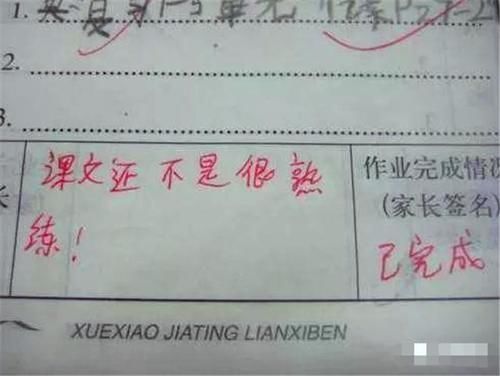 1. 英复习1-3单元
2.
3.
课文还不是很熟
练!
作业完成情况
(家长签名)
已完成
长
XUEXIAO JIATING LIANXIBEN